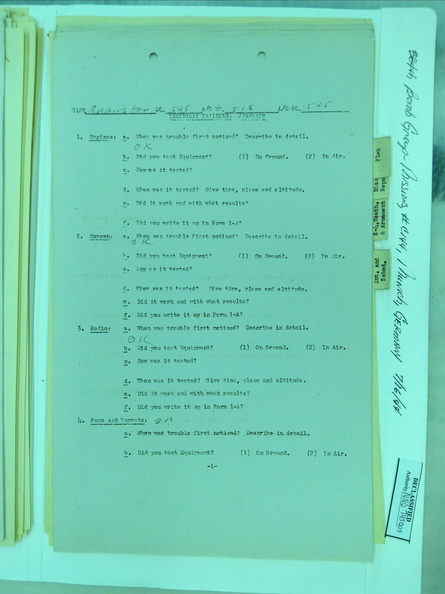 545 A/C NO. 518 545
MECHANICAL FAILURES, REPORT
1. Engines: a. When was trouble first noticed? Describe in detail.
OK
b. Did you test Equipment? (1) On Ground. (2) In Air.
c. How was it tested?
d. When was it tested? Give time, place and altitude.
e. Did it work and with what results?
f. Did you write it up in Form 1-A?
2. Oxygen: a. When was trouble first noticed? Describe in detail.
OK
b. Did you test Equipment? (1) On Ground. (2) In Air.
c. How was it tested?
d. When was it tested? Give time, place and altitude.
e. Did it work and with what results?
f. Did you write it up in Form 1-A?
3. Radio: a. When was trouble first noticed? Describe in detail.
OK
b. Did you test Equipment? (1) On Ground. (2) In Air.
c. How was it tested?
d. When was it tested? Give time, place and altitude.
e. Did it work and with what results?
f. Did you write it up in Form 1-A?
4. Guns and Turrets: OK
a. When was trouble first noticed? Describe in detail.
b. Did you test Equipment? (1) On Ground. (2) In Air.
-1-
Flak
Repo
& Armament
and
Sched.
Bomb Group, Missing, Munich, Germany
DECLASSIFIED
Authority NND 745005